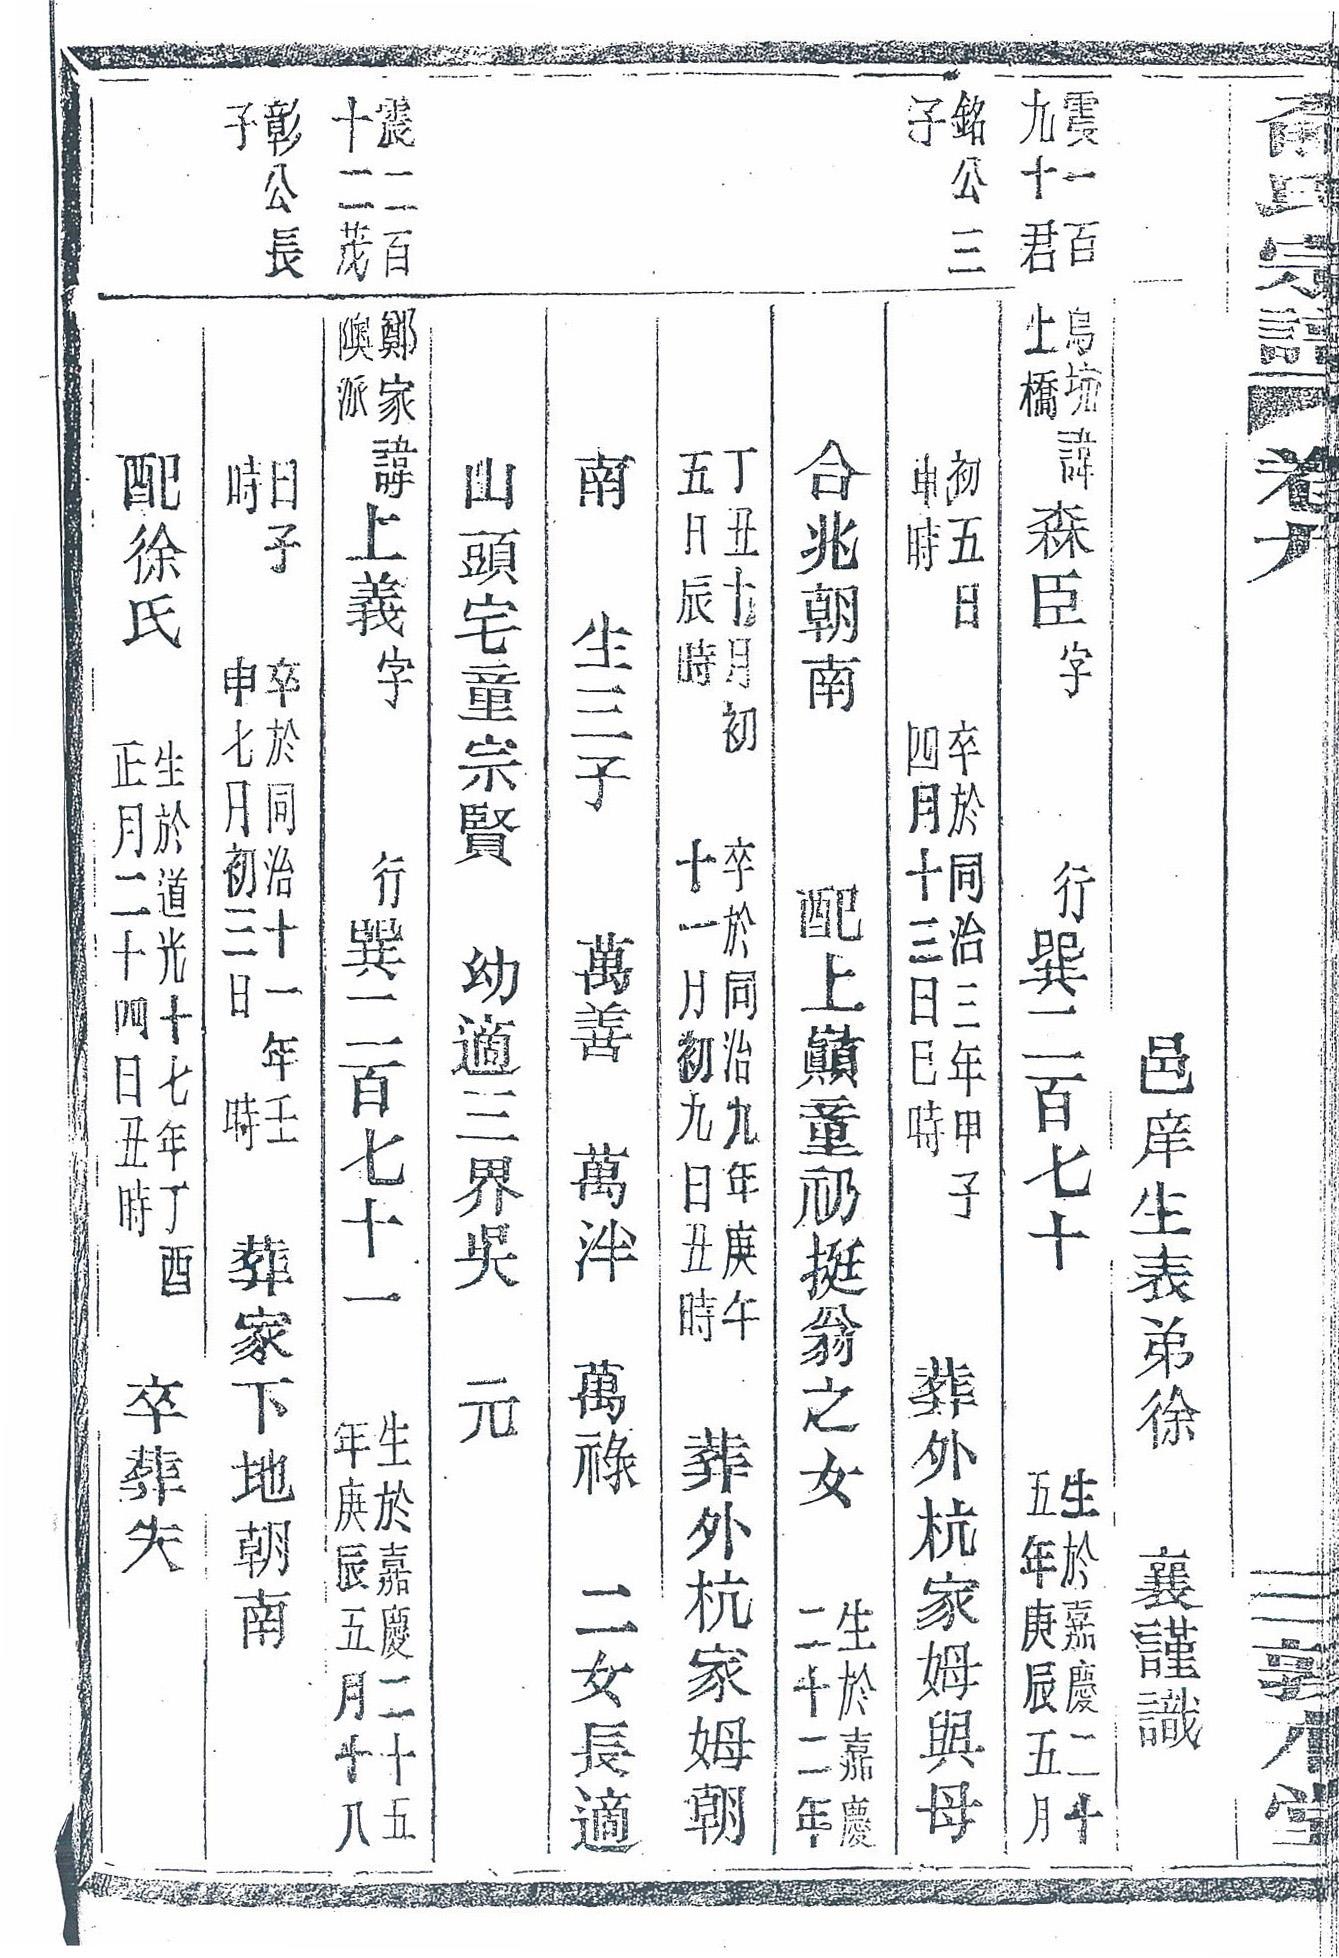 俞氏宗譜 卷九
邑庠生表弟徐 襄謹識
震一百
九十君
銘公三
子
烏坑
上橋
諱森臣字 行巽二百七十 生於嘉慶二十
五年庚辰五月
初五日
申時
卒於同治三年甲子
四月十三日巳時
葬外杭家姆與母
合兆朝南 配上巔童祁挺翁之女 生於嘉慶
二十二年
丁丑十月初
五日辰時
卒於同治九年庚午
十一月初九日丑時
葬外杭家姆朝
南 生三子 萬善 萬泮 萬祿 二女長適
山頭宅童宗賢 幼適三界吳 元
震二百
十二茂
彰公長
子
鄭家
隩派
諱上義字 行巽二百七十一 生於嘉慶二十五
年庚辰五月十八
日子
時
卒於同治十一年壬
申七月初三日 時
葬家下地朝南
配徐氏 生於道光十七年丁酉
正月二十四日丑時
卒葬失